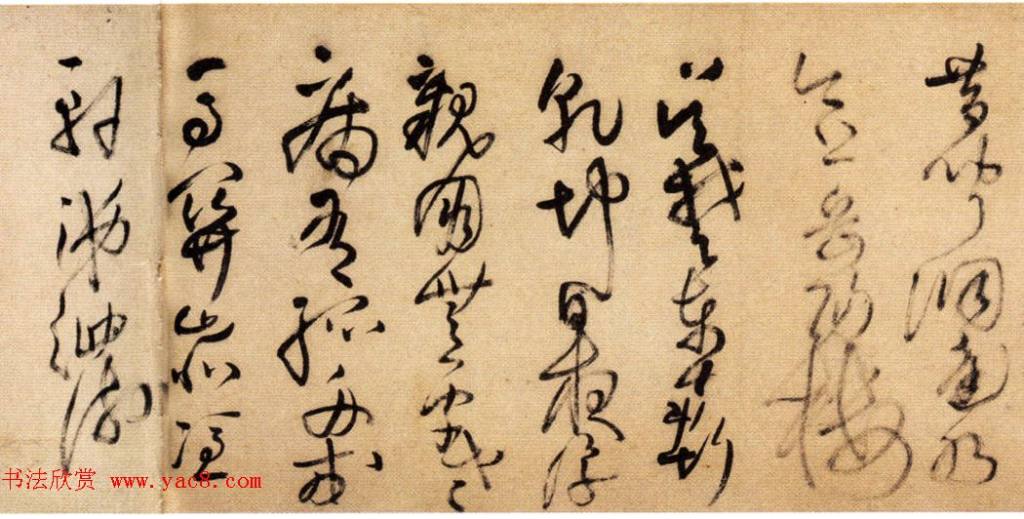 昔聞洞庭水
今上岳陽樓
吳楚東南坼
乾坤日夜浮
親朋無一字老
病有孤舟戎
馬關山北憑
軒涕泗流
书法欣赏 www.yac8.com